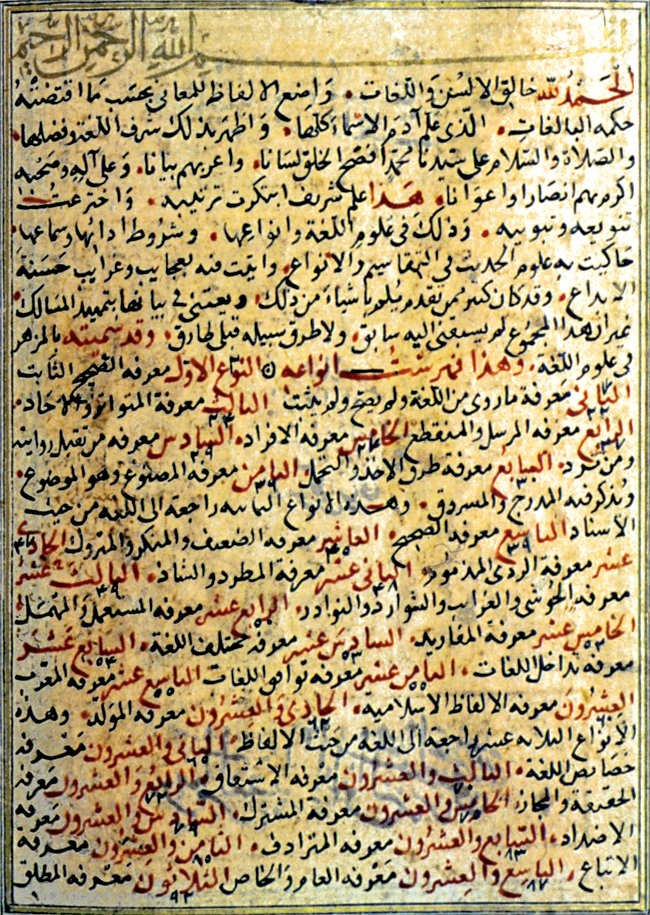 بسم الله الرحمن الرحيم
الحمد لله خالق الالسن واللغات • واضع الالفاظ للمعاني بحسب ما اقتضته
حكمه البالغات • الذي علم آدم الاسماء كلها • واظهر بذلك شرف اللغة وفضلها •
والصلاة والسلام على سيدنا محمد افصح الخلق لسانا • واعربهم بيانا • وعلى آله وصحبه
اكرم بهم انصارا واعوانا • هذا علم شريف ابتكرت ترتيبه • واخترعت
تنويعه وتبويبه • وذلك في علوم اللغة وانواعها • وشروط ادائها وسماعها •
حاكيت به علوم الحديث في التقاسيم والانواع • واتيت فيه بعجايب وغرايب حسنة
الابداع • وقد كان كثير ممن تقدم يلم باشياء من ذلك • ويعتني في بيانها بتمهيد المسالك •
غير ان هذا المجموع لم يسبقني اليه سابق • ولا طرق سبيله قبلي طارق • وقد سميته بالمزهر
في علوم اللغة • وهذا فهرست انواعه النوع الاول معرفة الصحيح الثابت
الثاني معرفة ما روي من اللغة ولم يصح ولم يثبت الثالث معرفة المتواتر والاحاد •
الرابع معرفه المرسل والمنقطع الخامس معرفه الافراد • السادس معرفه من تقبل روايته
ومن ترد • السابع معرفة طرق الاخذ والتحمل الثامن معرفة المصنوع وهو الموضوع •
ويذكر فيه المدرج والمسروق • وهذه الانواع الثمانيه راجعة الى اللغة من حيث
الاسناد التاسع معرفه الفصيح العاشر معرفه الضعيف والمنكر والمتروك الحادي
عشر معرفة الردي المذموم الثاني عشر معرفة المطرد والشاذ • الثالث عشر
معرفه الحوشي والغرايب والشوارد والنوادر • الرابع عشر معرفه المستعمل والمهمل
الخامس عشر معرفة المفاريد • السادس عشر معرفة مختلف اللغة • السابع عشر
معرفة تداخل اللغات • الثامن عشر معرفة توافق اللغات التاسع عشر معرفه المعرب
العشرون معرفه الالفاظ الاسلامية • الحادي والعشرون معرفه المولد • وهذه
الانواع الثلاثه عشر راجعة الى اللغة من حيث الالفاظ • الثاني والعشرون معرفة
خصايص اللغة • الثالث والعشرون معرفة الاشتقاق • الرابع والعشرون معرفة
الحقيقة والمجاز الخامس والعشرون معرفة المشترك • السادس والعشرون معرفه
الاضداد • السابع والعشرون معرفه المترادف • الثامن والعشرون معرفة
الاتباع • التاسع والعشرون معرفه العام والخاص الثلاثون معرفه المطلق